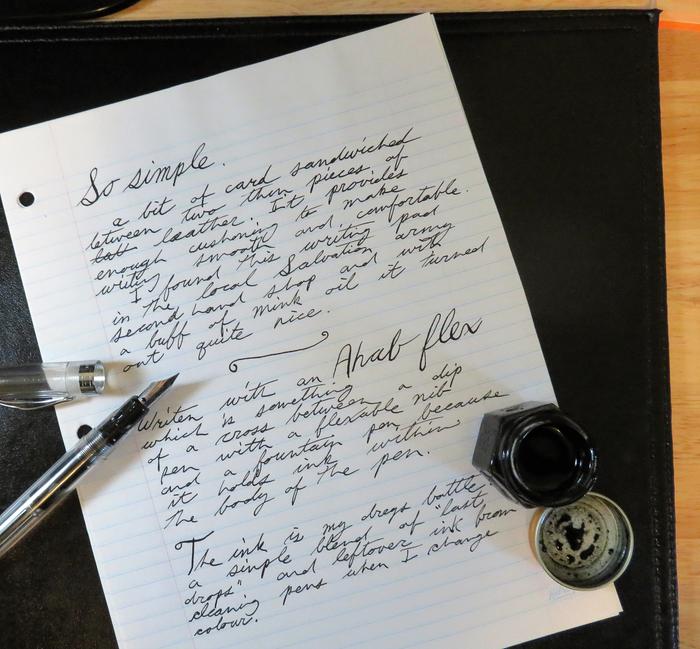 So simple.
a bit of card sandwiched
between two thin pieces of
leather. It provides
enough cushoning to make
writing smooth and comfortable.
I found this writing pad
in the local Salvation army
second hand shop and with
a buff of mink oil it turned
out quite nice.
Writen with an Ahab flex
which is something
of a cross between a dip
pen with a flexable nib
and a fountain pen, because
it holds ink within
the body of the pen.
The ink is my dregs bottle
a simple blend of "last
drops" and leftover ink from
cleaning pens when I change
colour.